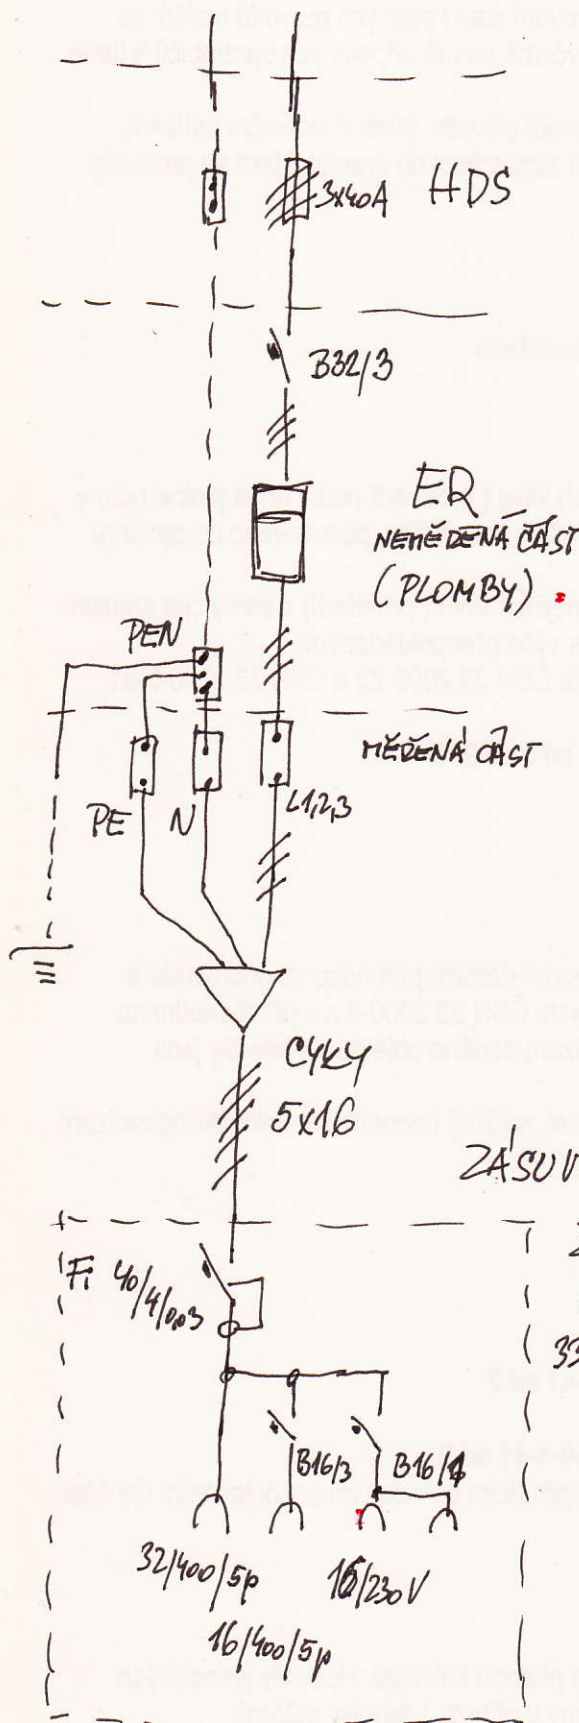 3x40A HDS
B32/3
ER
NEMĚŘENÁ ČÁST
(PLOMBY)
PEN
MĚŘENÁ ČÁST
PE N L1,2,3
CYKY
5x16
ZÁSUV
Fi 40/4/0,03
33
B16/3 B16/1
32/400/5p 16/230V
16/400/5p